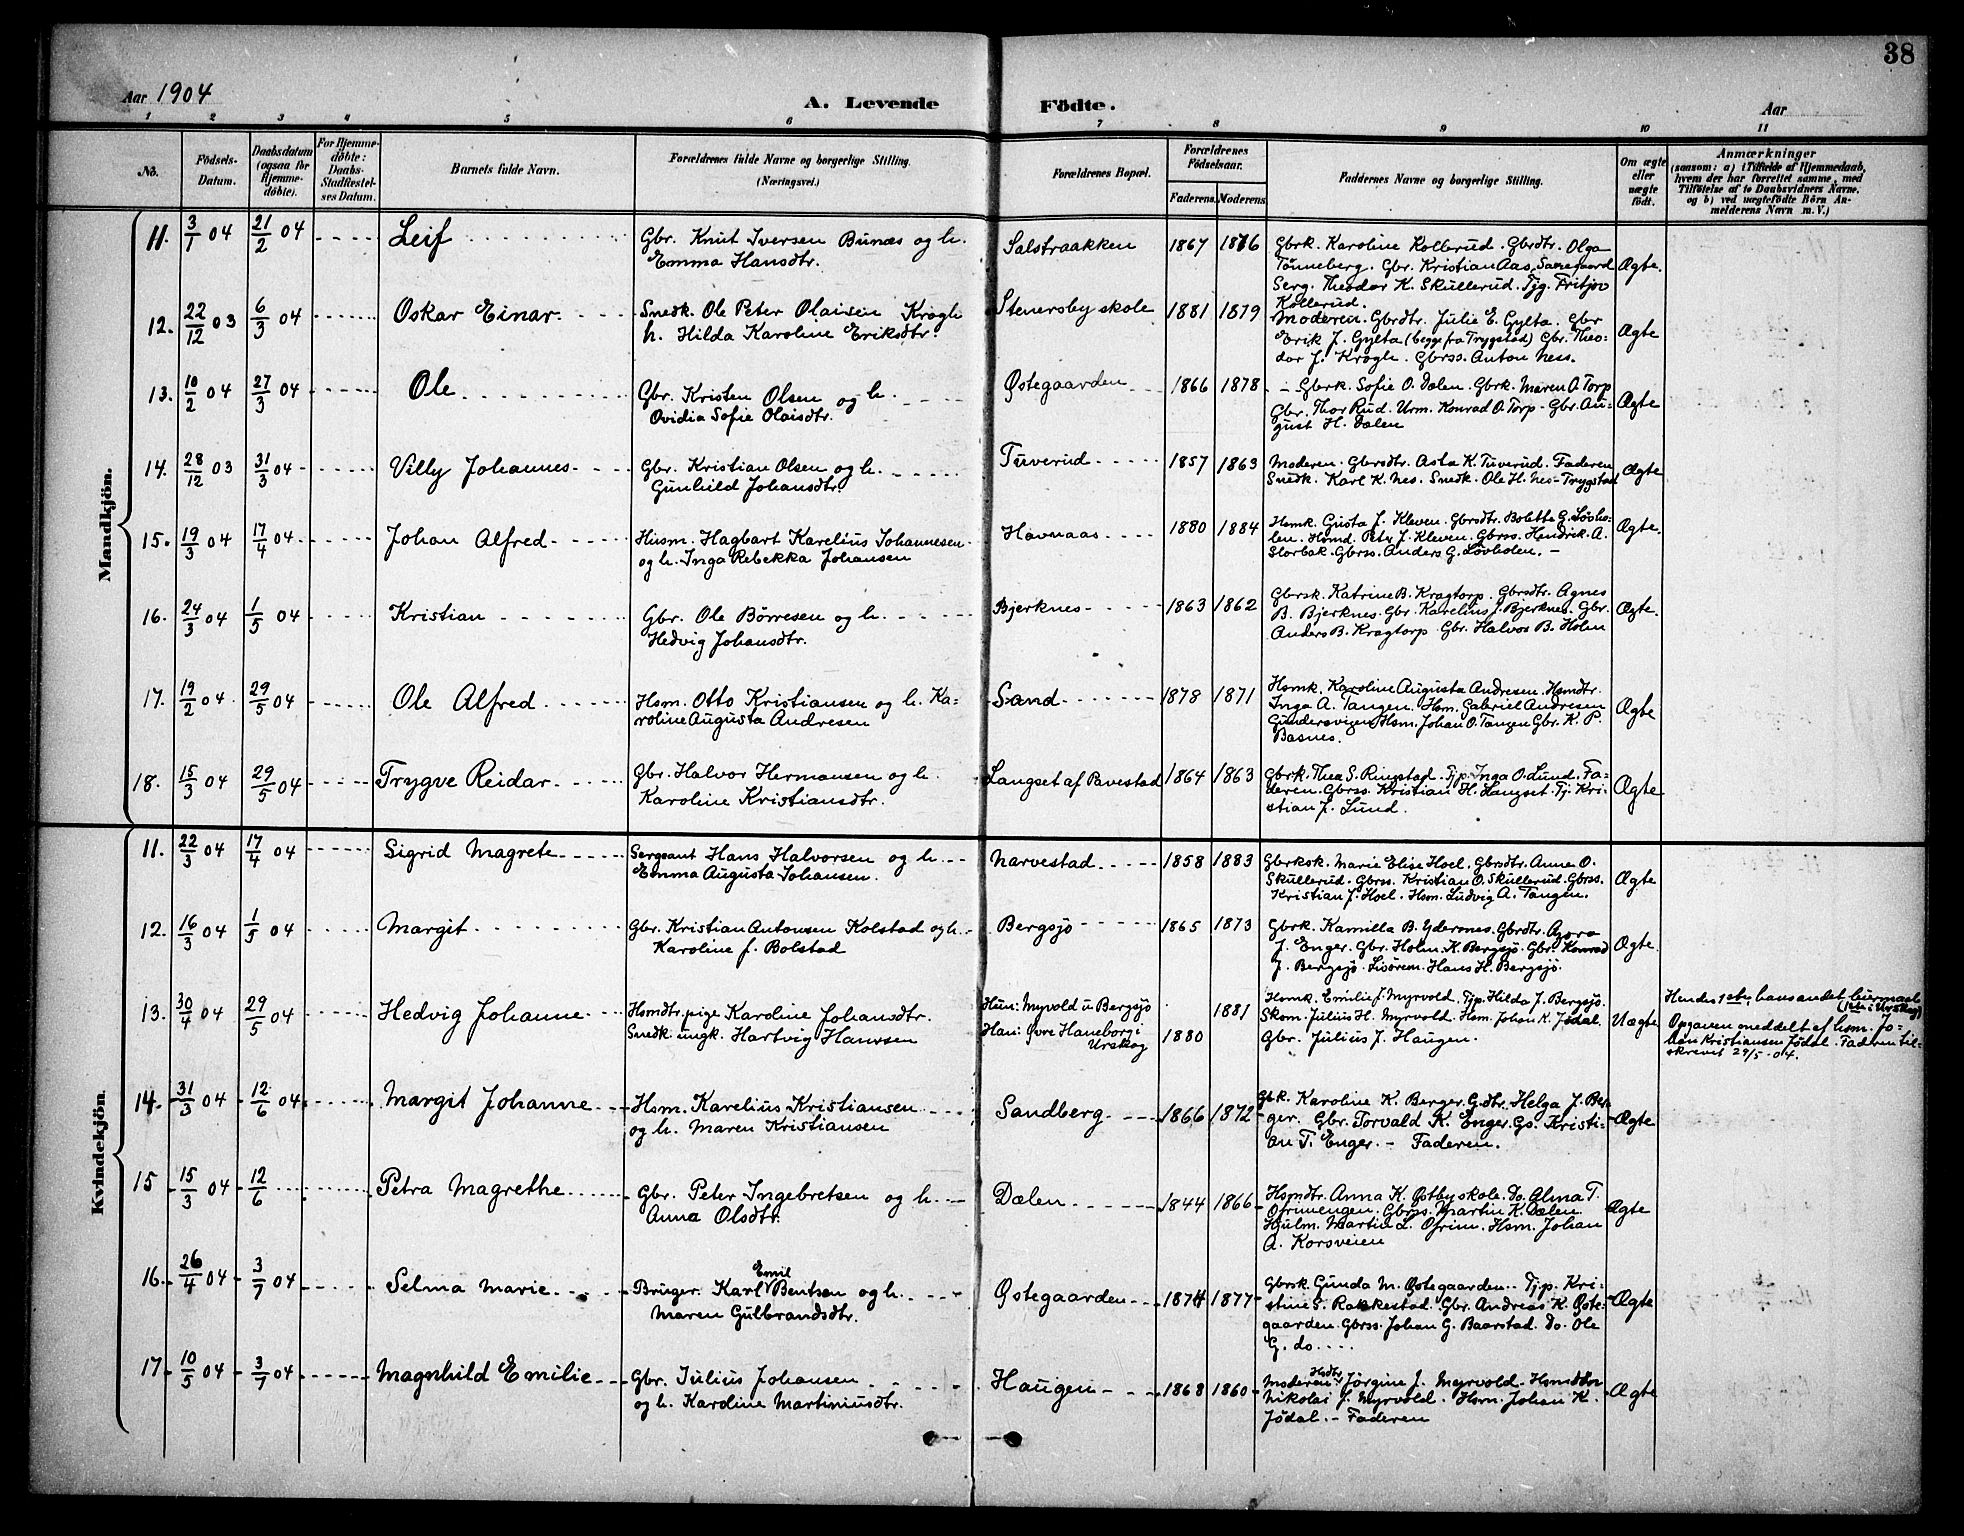 38
Aar 1904
A. Levende Födte.
Aar
1 2 3 4 5 6 7 8 9 10 11
No.
Födsels-
Datum.
Daabsdatum
(ogsaa for
Hjemme-
döbte).
For Hjemme-
döbte:
Daabs-
Stadfæstel-
ses Datum.
Barnets fulde Navn.
Forældrenes fulde Navne og borgerlige Stilling.
(Næringsvei.)
Forældrenes Bopæl.
Forældrenes
Födselsaar.
Faderens. Moderens.
Faddernes Navne og borgerlige Stilling.
Om ægte
eller
uægte
födt.
Anmærkninger
(saasom: a) i Tilfælde af Hjemmedaab,
hvem der har forrettet samme, med
Tilföielse af to Daabsvidners Navne,
og b) ved uægtefödte Börn An-
melderens Navn m. V.)
Mandkjön.
11. 3/1 04 21/2 04 Leif Gbr. Knut Iversen Bunæs og h.
Emma Hansdtr.
Salstraakken 1867 1876 Gbrk. Karoline Kollerud. Gbrdtr. Olga
Tönneberg. Gbr. Kristian Aas,
Serg. Theodor K. Skullerud. Tjg. Fritjov
Kollerud.
Ægte.
12. 22/12 03 6/3 04 Oskar Einar Snedk. Ole Peter Olaisen Krogh
h. Hilda Karoline Eriksdtr.
Stenersby skole 1881 1879 Moderen. Gbrdtr. Julie E. Gylta. Gbr
Erik J. Gylta (begge fra Trygstad) Gbr. Theo-
dor J. Krogh. Gbrss. Anton Nes.
Ægte
13. 10/2 04 27/3 04 Ole Gbr. Kristen Olsen og h.
Ovidia Sofie Olaisdtr.
Østegaarden 1866 1878 - Gbrk. Sofie O. Dælen. Gbrk. Maren O. Torp
Gbr. Thor Rud. Urm. Konrad O. Torp - Gbr. Au-
gust H. Dælen
Ægte
14. 28/12 03 31/3 04 Villy Johannes Gbr. Kristian Olsen og h.
Gunhild Johansdtr.
Tuverud 1857 1863 Moderen. Gbrsdtr. Asta K. Tuverud. Faderen
Snedk. Karl K. Nes. Snedk. Ole H. Nes - Trygstad
Ægte
15. 19/3 04 17/4 04 Johan Alfred Husm. Hagbart Karelius Johannesen
og h. Inga Rebekka Johansen
Havnaas 1880 1884 Hsmk. Gusta J. Kleven. Gbrsdtr. Bolette G. Lövho-
len. Hsmd. Peter J. Kleven. Gbrss. Hendrik A.
Storbak. Gbrss. Anders G. Lövholen. -
Ægte.
16. 24/3 04 1/5 04 Kristian Gbr. Ole Börresen og h.
Hedvig Johansdtr.
Bjerknes 1863 1862 Gbrsk. Katrine B. Kragtorp. Gbrsdtr. Agnes
B. Bjerknes. Gbr. Karelius J. Bjerknes. Gbr.
Anders B. Kragtorp. Gbr. Halvor B. Holen
Ægte.
17. 19/2 04 29/5 04 Ole Alfred Hsm. Otto Kristiansen og h. Ka-
roline Augusta Andresen
Sand 1878 1871 Hsmk. Karoline Augusta Andresen. Hsmdtr.
Inga A. Tangen. Hsm. Gabriel Andresen
Gundersvigen Hsm. Johan O. Tangen Gbr. K. P.
Basnes.
Ægte
18. 15/3 04 29/5 04 Trygve Reidar Gbr. Halvor Hermansen og h.
Karoline Kristiansdtr.
Langset af Pavestad 1864 1863 Gbrk. Thea S. Ringstad. Tjp. Inga O. Lund. Fa-
deren. Gbrss. Kristian H. Langset. Tj. Kri-
stian J. Lund.
Ægte
Kvindekjön.
11. 22/3 04 17/4 04 Sigrid Magrete Sergeant Hans Halvorsen og h.
Emma Augusta Johansen.
Narvestad 1858 1883 Gbrksk. Marie Elise Hoel. Gbrsdtr. Anne O.
Skullerud. Gbrss. Kristian O. Skullerud. Gbrss.
Kristian J. Hoel. Hsm. Ludvig A. Tangen.
Ægte
12. 16/3 04 1/5 04 Margit Gbr. Kristian Antonsen Kolstad og h.
Karoline f. Bolstad
Bergsjö 1865 1873 Gbrk. Kamilla B. Ydersnes. Gbrdtr. Agora
J. Enger. Gbr. Holm. K. Bergsjö. Gbr. Konrad
J. Bergsjö. Hans H. Bergsjö.
Ægte.
13. 30/4 04 29/5 04 Hedvig Johanne Hsmdtr. pige Karoline Johansdtr.
Snedk. ungk. Hartvig Hansen
Hun: Myrvold u Bergsjö
Han: Övre Haneborg i
Urskog
1880 1881 Hsmk. Emilie J. Myrvold. Tjp. Hilda J. Bergsjö.
Skom. Julius H. Myrvold. Hsm. Johan K. Jödal.
Gbr. Julius J. Haugen.
Uægte
Hendes 1ste, hans andet leiermaal
(1ste i Urskog)
Opgaven meddelt af hsm. Jo-
han Kristiansen Jödal. Faderen til-
skrevet 29/5-04.
14. 31/3 04 12/6 04 Margit Johanne Hsm. Karelius Kristiansen
og h. Maren Kristiansen
Sandberg 1866 1872 Gbk. Karoline K. Berger. Gdtr. Helga J. Ber-
ger. Gbr. Torvald K. Enger. Gs. Kristi-
an T. Enger. - Faderen.
Ægte
15 15/3 04 12/6 Petra Magrethe Gbr. Peter Ingebretsen og h.
Anna Olsdtr.
Dælen 1844 1866 Hsmdtr. Anna K. Østbyskole. Do. Alma T.
Ofrimengen. Gbrss. Martin K. Dælen.
Hjulm. Martin L. Ofrim. Hsm. Johan
A. Korsveien
Ægte
16. 26/4 04 3/7 04 Selma Marie Bruger. Karl Emil Bentsen og h.
Maren Gulbrandsdtr.
Østegaarden 1874 1877 Gbrsk. Gunda M. Østegaarden. Tjp. Kri-
stine S. Rakkestad. Gbr. Andreas K. Øste-
gaarden. Gbrss. Johan G. Baarstad. Do. Ole
G. do.
Ægte
17. 10/5 04 3/7 04 Magnhild Emilie Gbr. Julius Johansen
og h. Kardine Martiniusdtr.
Haugen 1868 1860 Moderen. Hsdtr. Jörgine J. Myrvold.
Nikolai J. Myrvold. Hsm. Johan K.
Jödal. - Faderen
Ægte